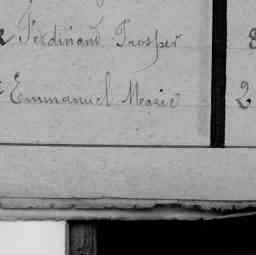 Ferdinand Prosper
Emmanuel Marie 2